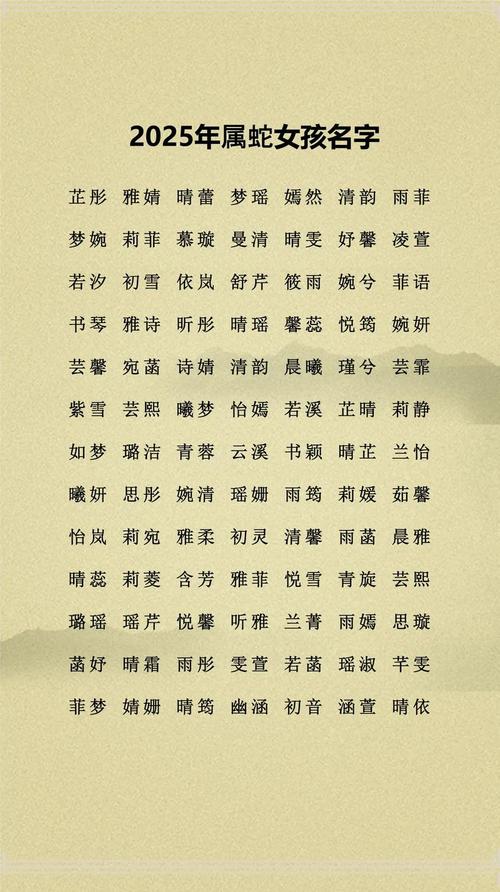 2025年属蛇女孩名字
芷彤 雅婧 晴蕾 梦瑶 嫣然 清韵 雨菲
梦婉 莉菲 慕璇 曼清 晴雯 妤馨 凌萱
若汐 初雪 依岚 舒芹 筱雨 婉兮 菲语
书琴 雅诗 昕彤 晴瑶 馨蕊 悦筠 婉妍
芸馨 宛菡 诗婧 清韵 晨曦 瑾兮 芸霏
紫雪 芸熙 曦梦 怡嫣 若溪 芷晴 莉静
如梦 璐洁 青蓉 云溪 书颖 晴芷 兰怡
曦妍 思彤 婉清 瑶姗 雨筠 莉媛 茹馨
怡岚 莉宛 雅柔 初灵 清馨 雨菡 晨雅
晴蕊 莉菱 含芳 雅菲 悦雪 青旋 芸熙
璐瑶 瑶芹 悦馨 听雅 兰菁 雨嫣 思璇
菡妤 晴霜 雨彤 雯萱 若菡 瑶淑 芊雯
菲梦 婧姗 晴筠 幽涵 初音 涵萱 晴依